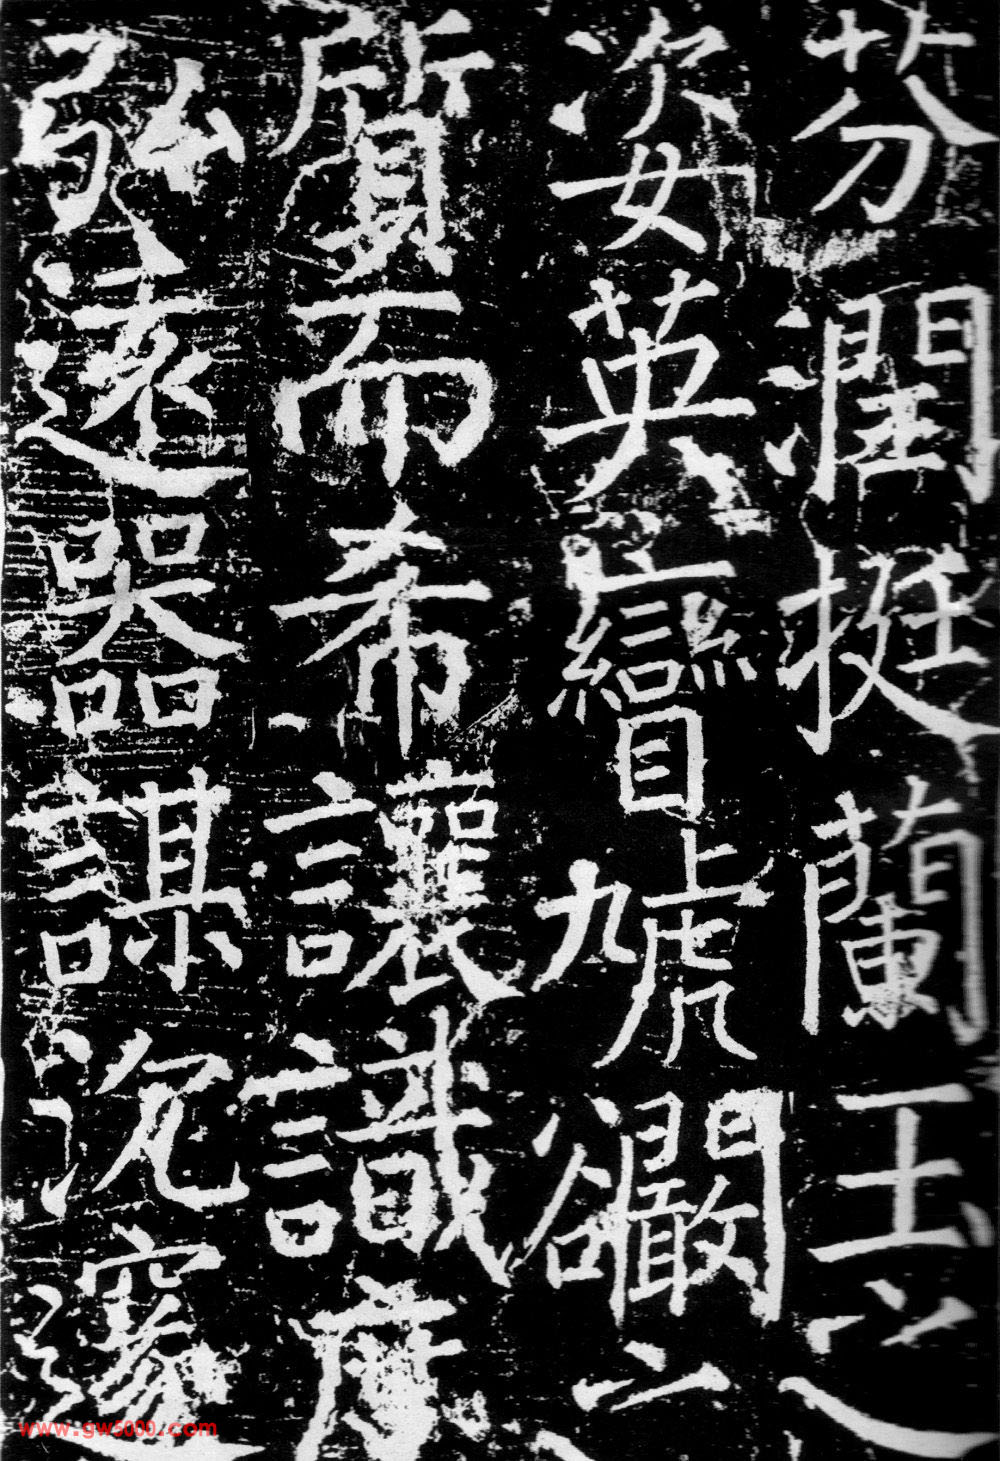 芬潤挺蘭玉之
姿英矕虓豃之
質而希讓識度
弘遠器謀沉邃
www.gw5000.com